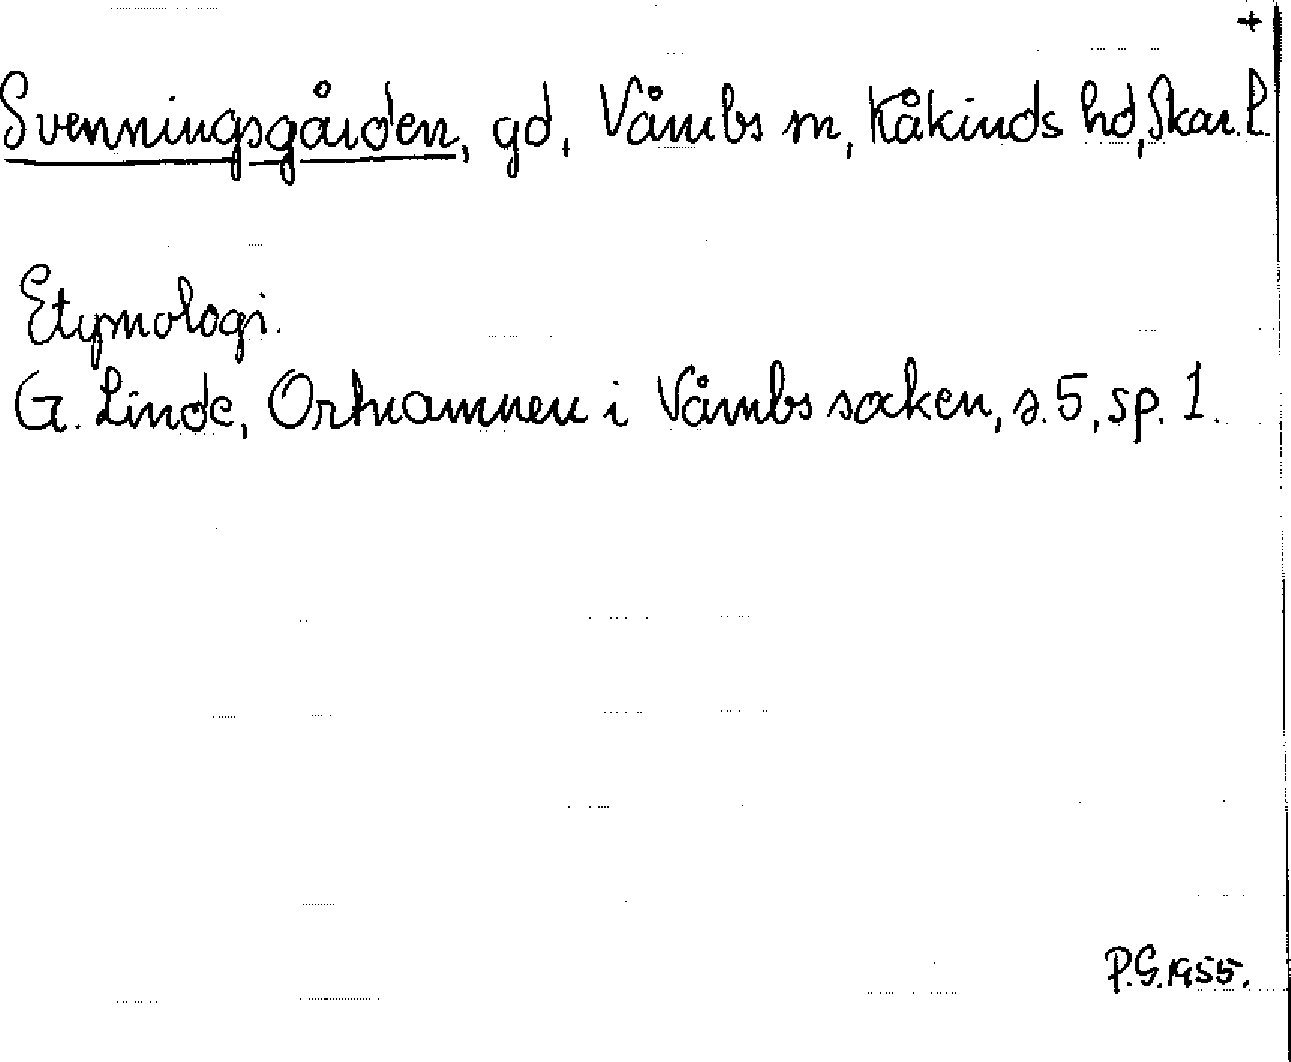 +
Svenningsgården, gd, Våmbs sn, Kåkinds hd, Skar. l.
Etymologi.
G. Linde, Ortnamnen i Våmbs socken, s. 5, sp. 1.
P.G. 1955.